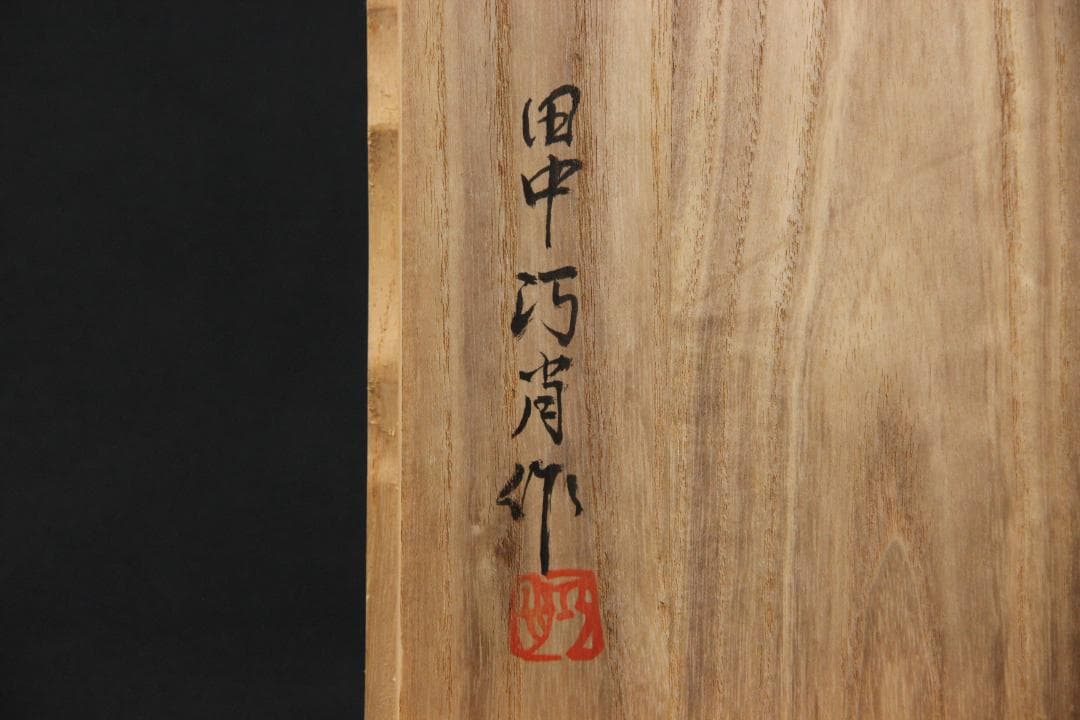 田中汚肖作